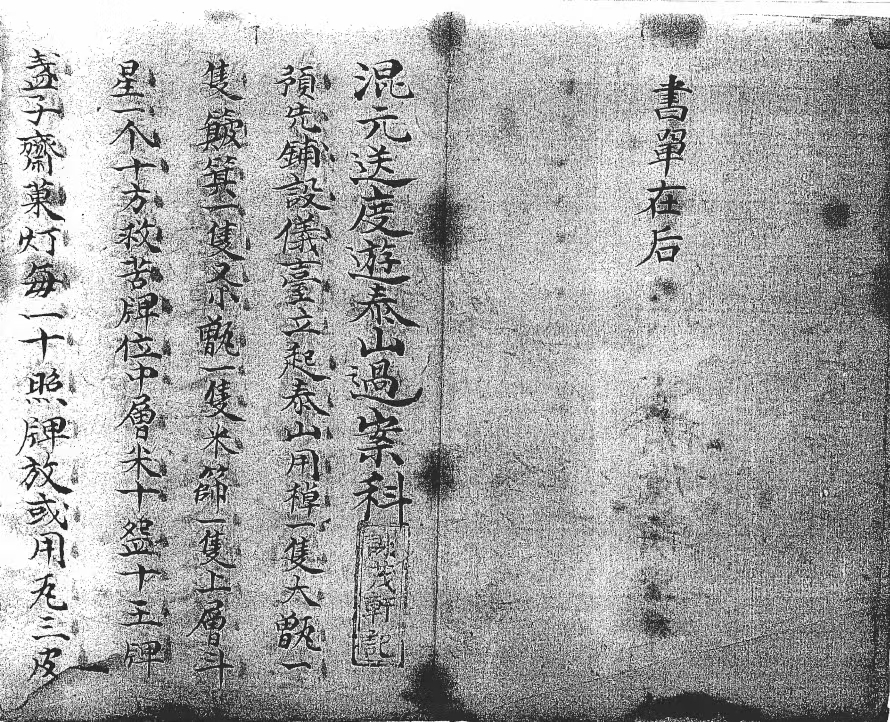 書單在后
混元送度遊泰山過案科
茂軒記
預先鋪設儀臺立起泰山用棹一隻大甑一
隻簸箕一隻又小甑一隻米篩一隻上層斗
星一个十方救苦牌位中層米十盌十王牌
盞子齋菓灯每一十照牌放或用瓦三皮